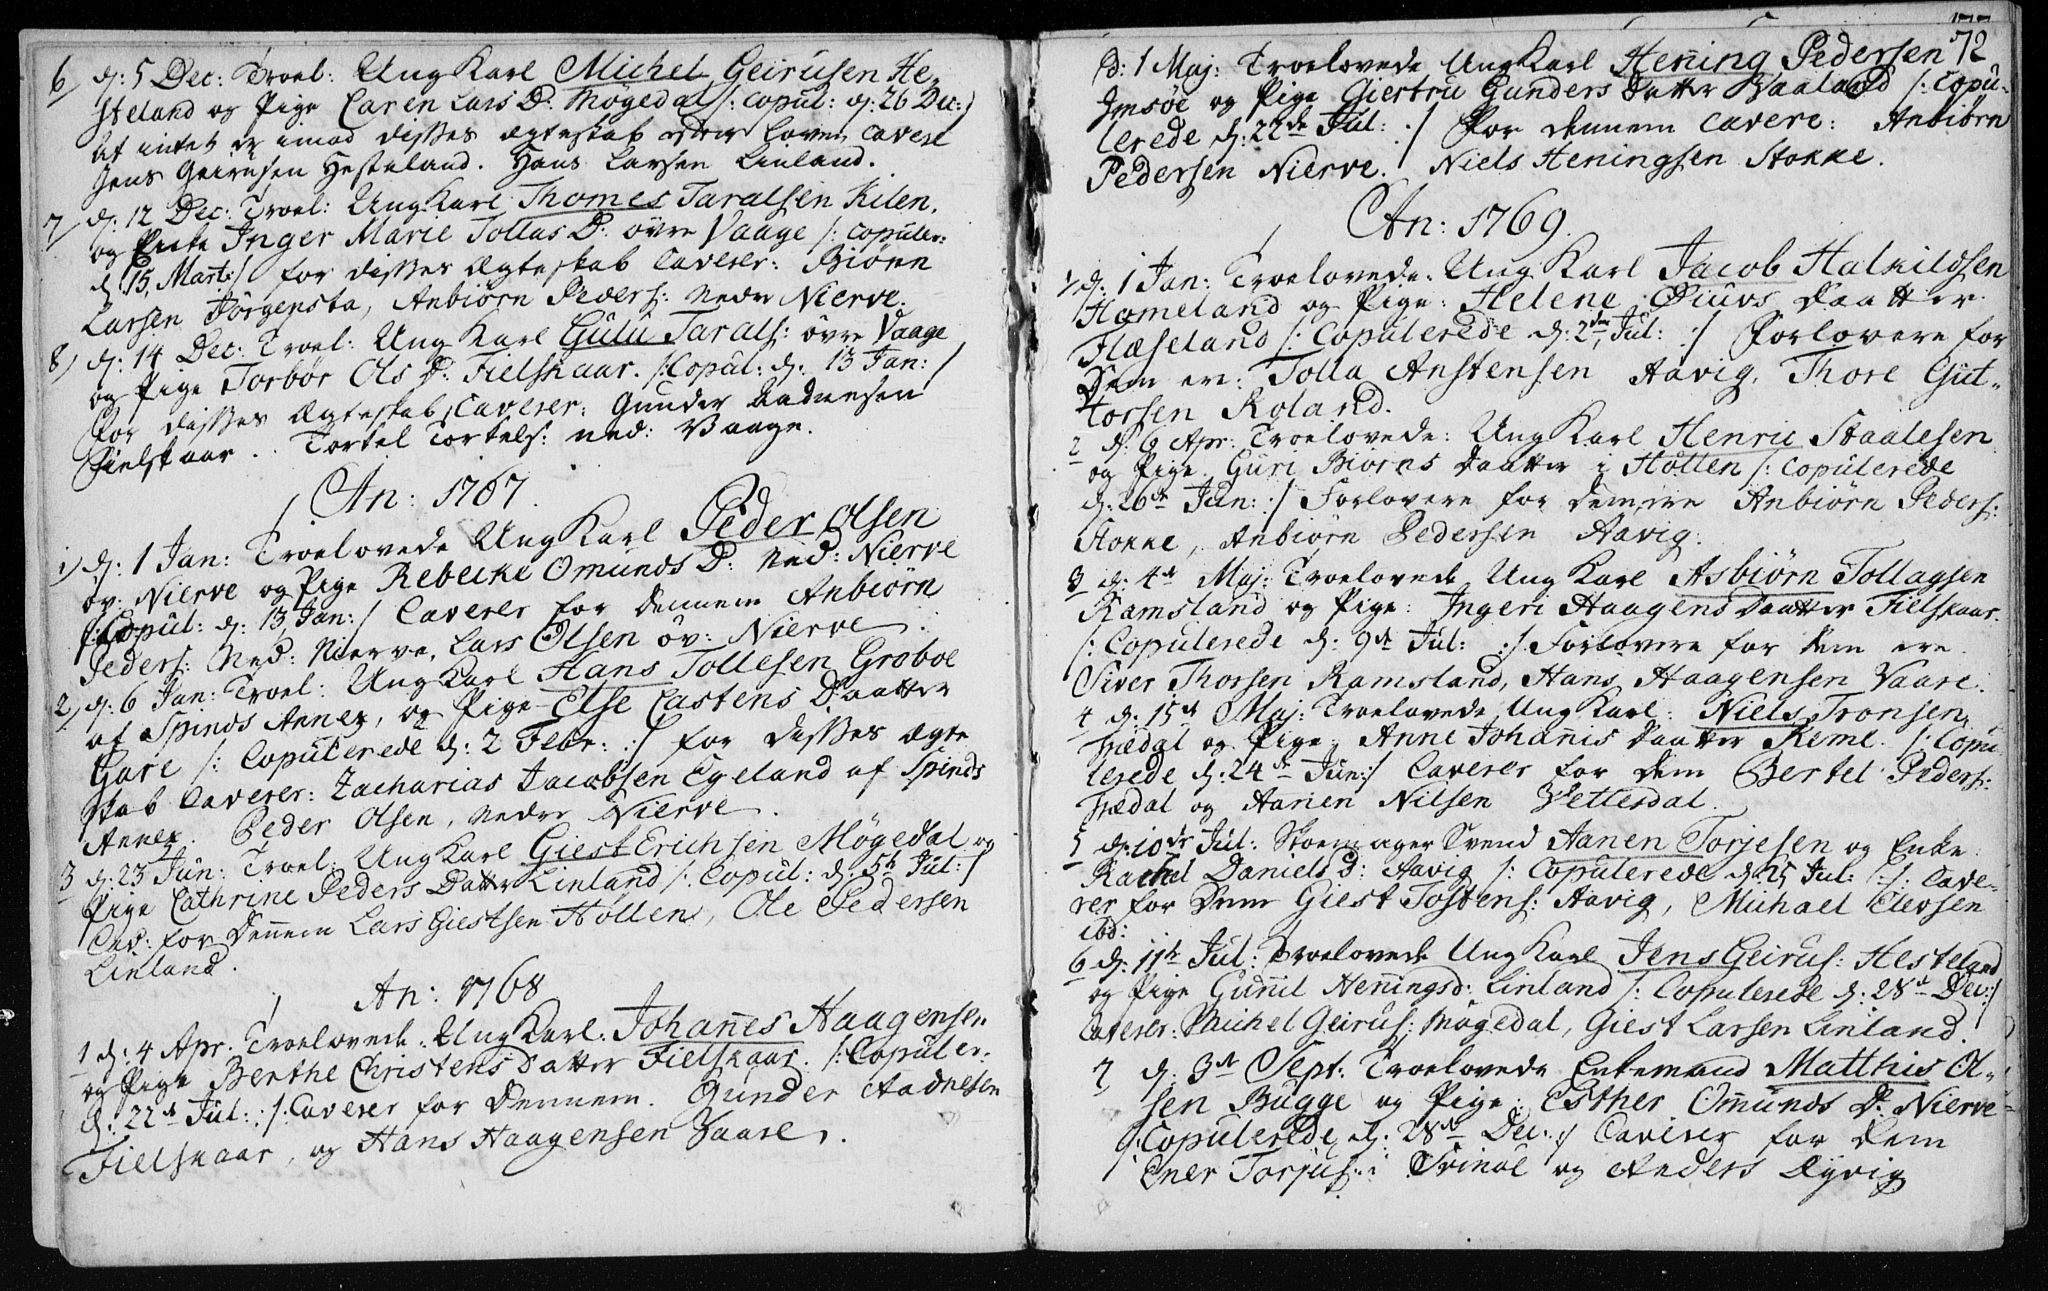 6/ d: 5 Dec: Troel: Ung Karl Michel Geirusen He-
steland og Pige Caren Lars D: Mögedal /: Copul: d: 26 Dec:/
at intet er imod disses ægteskab loven cavere
Jens Geirusen Hesteland. Hans Larsen Linland.
7/ d: 12 Dec: Troel: Ung Karl Thomes Taralsen Kilen,
og Enke Inger Marie Tollas D: övre Vaage /: Copuler:
d 15, Mart:/ for disses Ægteskab Caverer: Biönn
Larsen Jörgensta, Anbiörn Peders: nedre Nierve.
8) d: 14 Dec: Troel: Ung Karl Gulu Tarals: övre Vaage
og Pige Torbor Ols D: Fielskaar. /: Copul: d: 13 Jan: /
for disses Ægteskab Caverer: Gunder Aadnesen
Fielskaar. Tortel Tortels: ned: Vaage.
An: 1767.
1) d: 1 Jan: Troelovede Ung Karl Peder Olsen
öv: Nierve og Pige Rebecke Omunds D: Ned: Nierve
/: Copul: d: 13 Jan: / Caverer for dennem Anbiörn
Peders: Ned: Nierve, Lars Olsen öv: Nierve.
2) d: 6 Jan: Troel: Ung Karl Hans Tollesen Groboe
af Spinds Annex, og Pige Else Castens Daatter
Gare /: Copulerede d: 2 Febr: :/ for disses ægte
skab Caverer: Zacharias Jacobsen Egeland af Spinds
Annex. Peder Olsen, nedre Nierve.
3 d: 23 Jun: Troel: Ung Karl Giest Erichsen Mögedal og
Pige Cathrine Peders Datter Linland /: Copul: d: 5t Jul: /
Cav: for Dennem Lars Giestsen Höllen, Ole Pedersen
Linland.
An: 1768
1 d: 4 Apr: Troelovede: Ung Karl: Johannes Haagensen
og Pige Berthe Christens Datter Fielskaar. /: Copuler:
d: 22de Jul: :/ Caverer for Dennem. Gunder Aadnesen
Fielskaar, og Hans Haagensen Vaare.
72
d: 1 Maj: Troelovede Ung Karl Hening Pedersen
Imsöe og Pige Giertru Gunders Datter Vaaland /: Copu-
lerede d: 22de Jul: :/ for dennem cavere: Anbiörn
Pedersen Nierve. Niels Heningsen Stokke.
An: 1769.
1 d: 1 Jan: Troelovede: Ung Karl Jacob Halkildsen
Homeland og Pige: Helene Siuvs Daatter
Flæseland /: Copulerede d: 2den Jul: :/ Forlovere for
dem er: Tolla Anstensen Aavig, Thore Gut-
torsen Roland.
2 d: 6 Apr: Troelovede: Ung Karl Henric Staalesen
og Pige Guri Biörns Daatter i Hollen /: Copulerede
d: 26de Jun: :/ Forlovere for dem ere Anbiörn Peders:
Stokke, Anbiörn Pedersen Aavig.
3 d: 4de Maj: Troelovede Ung Karl Asbiörn Tollagsen
Ramsland og Pige: Ingeri Haagens Daatter Fielskaar.
/: Copulerede d: 9de Jul: :/ Forlovere for dem ere
Siver Thorsen Ramsland, Hans Haagensen Vaare.
4 d: 15de Maj: Troelovede Ung Karl: Niels Tronsen
Hædal og Pige: Anne Johanis Daatter Reme. /: Copu
lerede d: 24de Jun:/ Caverer for dem Bertel Peders:
Hædal og Aanen Nilsen Vettesdal.
5 d: 10de Jul: Skoemager Svend Aanen Torjesen og Enke
Rachel Daniels D: Aavig /: Copulerede d: 25 Jul: :/: Cave-
rer for dem Giest Tostens: Aavig, Michael Elevsen
ibd:
6 d: 11te Jul: Troelovede Ung Karl Jens Geirus: Hesteland
og Pige Gunnil Henningsd: Linland /: Copulerede d: 28de Dec:/
Caverer: Michel Geirus: Mögedal, Giest Larsen Linland.
7 d: 3de Sept: Troelovede Enkemand Matthis Ol-
sen Bugge og Pige: Esther Omunds D: Nierve
/: Copulerede d: 28de Dec: :/ Caverer for dem
Ener Torjus: i Svinöe og Anders Dyvig